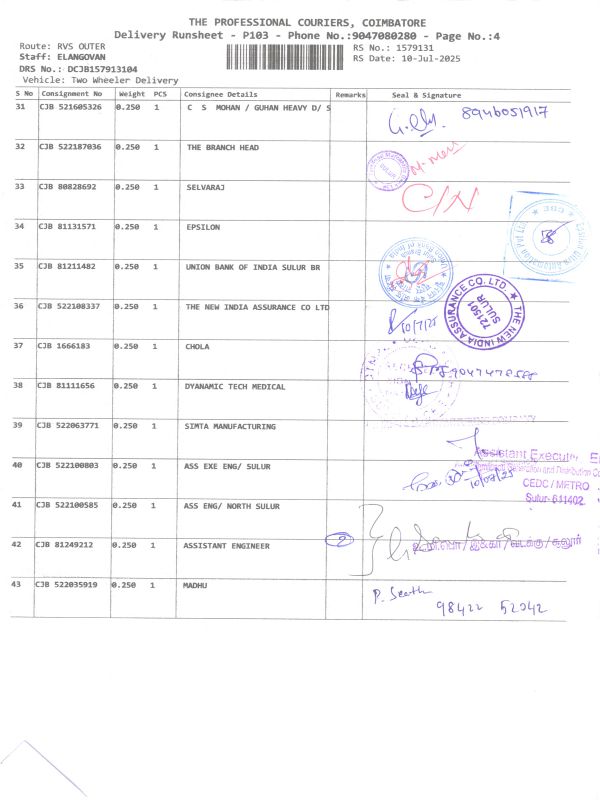 THE PROFESSIONAL COURIERS, COIMBATORE
Delivery Runsheet - P103 - Phone No.:9047080280 - Page No.:4
Route: RVS OUTER
RS No.: 1579131
Staff: ELANGOVAN
RS Date: 10-Jul-2025
DRS No.: DCJB157913104
Vehicle: Two Wheeler Delivery
S No Consignment No Weight PCS Consignee Details Remarks Seal & Signature
31 CJB 521605326 0.250 1 C S MOHAN / GUHAN HEAVY D/ S 8946051917
32 CJB 522187036 0.250 1 THE BRANCH HEAD
SULUR
33 CJB 80828692 0.250 1 SELVARAJ
34 CJB 81131571 0.250 1 EPSILON
35 CJB 81211482 0.250 1 UNION BANK OF INDIA SULUR BR
36 CJB 522108337 0.250 1 THE NEW INDIA ASSURANCE CO LTD 10/7/25
THE NEW INDIA ASSURANCE CO. LTD.
721501
SULUR
37 CJB 1666183 0.250 1 CHOLA
38 CJB 81111656 0.250 1 DYANAMIC TECH MEDICAL
39 CJB 522063771 0.250 1 SIMTA MANUFACTURING
Assistant Executi
40 CJB 522100803 0.250 1 ASS EXE ENG/ SULUR
and Distribution Co
CEDC / METRO
Sulur-641402
41 CJB 522100585 0.250 1 ASS ENG/ NORTH SULUR
42 CJB 81249212 0.250 1 ASSISTANT ENGINEER 2
43 CJB 522035919 0.250 1 MADHU
98422 52042